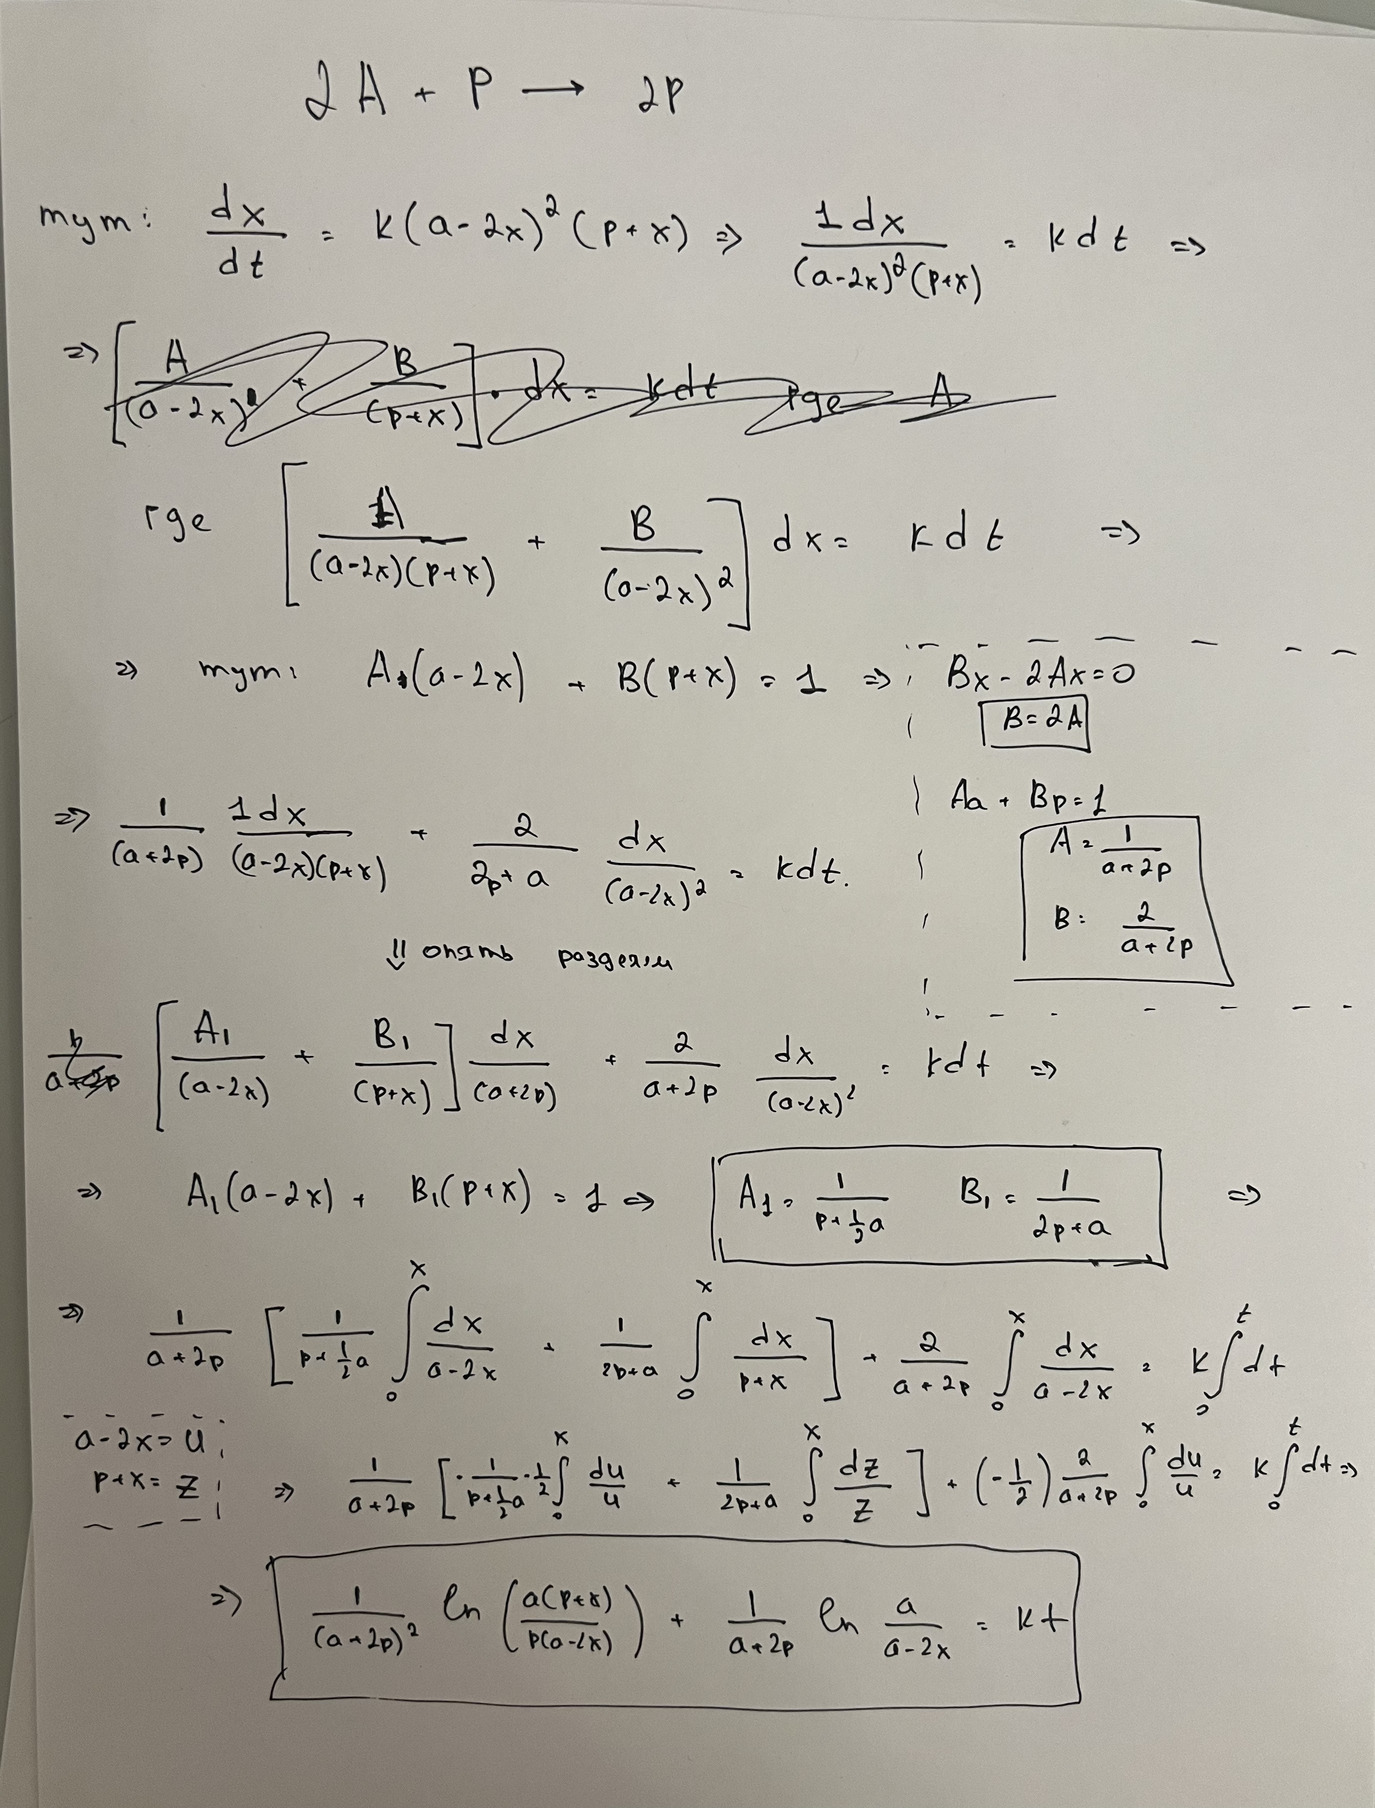 2A + P → 2P
тут: dx/dt = K(a-2x)²(p+x) => 1dx/((a-2x)²(p+x)) = kdt =>
=> [A/(a-2x) + B/(p+x)] · dx = kdt где A
где [A/((a-2x)(p+x)) + B/(a-2x)²] dx = kdt =>
=> тут: A(a-2x) + B(p+x) = 1 => Bx - 2Ax = 0
B = 2A
Aa + Bp = 1
A = 1/(a+2p)
B = 2/(a+2p)
=> 1/(a+2p) 1dx/((a-2x)(p+x)) + 2/(2p+a) dx/(a-2x)² = kdt.
⇓ опять разделим
[A₁/(a-2x) + B₁/(p+x)] dx/(a+2p) + 2/(a+2p) dx/(a-2x)² = kdt =>
=> A₁(a-2x) + B₁(p+x) = 1 => A₁ = 1/(p+½a) B₁ = 1/(2p+a) =>
=> 1/(a+2p) [1/(p+½a) ∫₀ˣ dx/(a-2x) + 1/(2p+a) ∫₀ˣ dx/(p+x)] + 2/(a+2p) ∫₀ˣ dx/(a-2x) = k∫₀ᵗ dt
a-2x = u
p+x = z
=> 1/(a+2p) [-1/(p+½a) · ½ ∫₀ˣ du/u + 1/(2p+a) ∫₀ˣ dz/z] + (-½) 2/(a+2p) ∫₀ˣ du/u = k∫₀ᵗ dt =>
=> 1/(a+2p)² ln(a(p+x)/(p(a-2x))) + 1/(a+2p) ln a/(a-2x) = kt